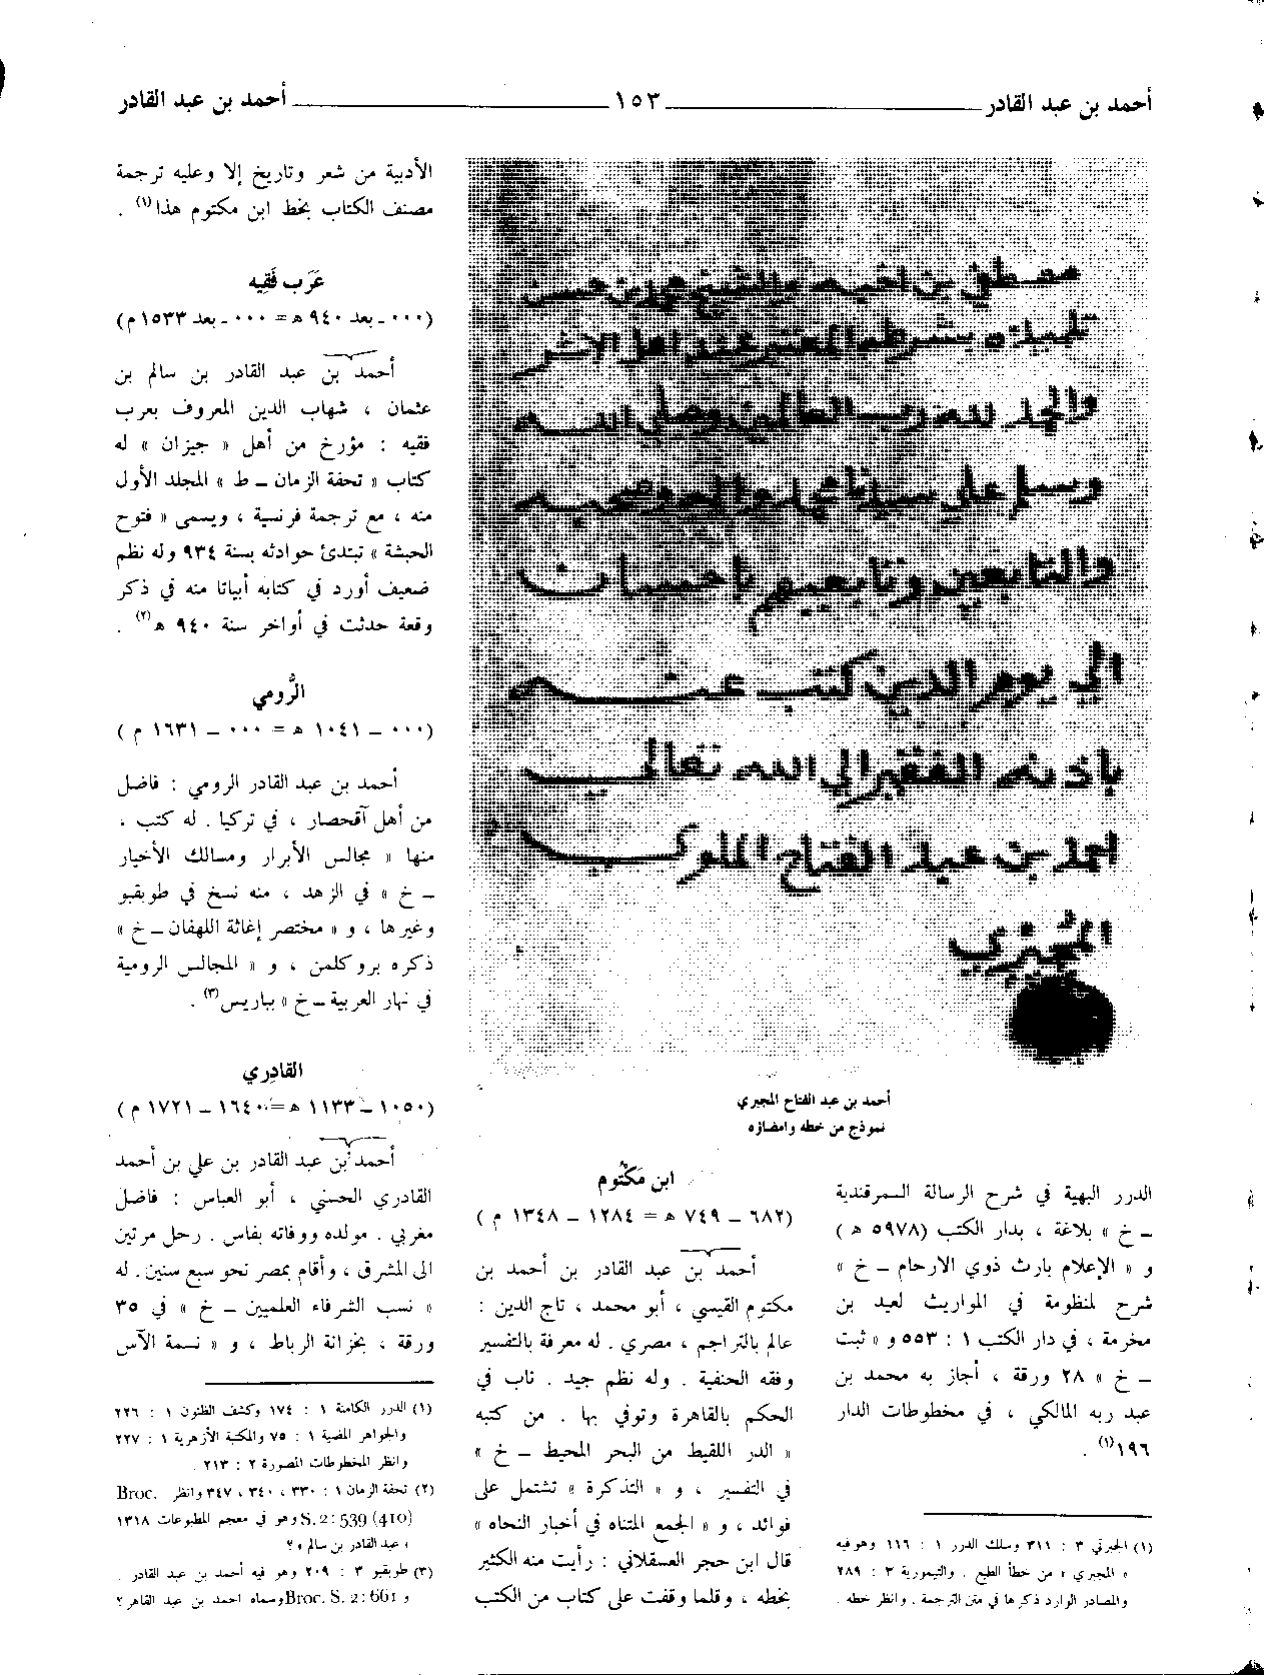 أحمد بن عبد القادر ــــــــ ١٥٣ ــــــــ أحمد بن عبد القادر
مصطفي بن احمد والشيخ محمد بن حسن
تلميذه بشرطه المعتبر عند اهل الاثر
والحمد لله رب العالمين وصلي الله
وسلم علي سيدنا محمد واله وصحبه
والتابعين وتابعيهم باحسان
الي يوم الدين كتب عنه
باذنه الفقير الي الله تعالي
احمد بن عبد الفتاح الملوي
المجيري
أحمد بن عبد الفتاح المجيري
نموذج من خطه وامضاؤه
الدرر البهية في شرح الرسالة السمرقندية
ــ خ » بلاغة ، بدار الكتب (٥٩٧٨ ه )
و « الإعلام بارث ذوي الارحام ــ خ »
شرح لمنظومة في المواريث لعبد بن
مخرمة ، في دار الكتب ١ : ٥٥٣ و « ثبت
ــ خ » ٢٨ ورقة ، أجاز به محمد بن
عبد ربه المالكي ، في مخطوطات الدار
١٩٦(١) .
(١) الجبرتي ٣ : ٣١١ وسلك الدرر ١ : ١١٦ وهو فيه
« المجبري » من خطأ الطبع . والتيمورية ٣ : ٢٨٩
والمصادر الوارد ذكرها في متن الترجمة . وانظر خطه .
ابن مَكْتُوم
(٦٨٢ ــ ٧٤٩ ه = ١٢٨٤ ــ ١٣٤٨ م )
أحمد بن عبد القادر بن أحمد بن
مكتوم القيسي ، أبو محمد ، تاج الدين :
عالم بالتراجم ، مصري . له معرفة بالتفسير
وفقه الحنفية . وله نظم جيد . ناب في
الحكم بالقاهرة وتوفي بها . من كتبه
« الدر اللقيط من البحر المحيط ــ خ »
في التفسير ، و « التذكرة » تشتمل على
فوائد ، و « الجمع المتناه في أخبار النحاه »
قال ابن حجر العسقلاني : رأيت منه الكثير
بخطه ، وقلما وقفت على كتاب من الكتب
الأدبية من شعر وتاريخ إلا وعليه ترجمة
مصنف الكتاب بخط ابن مكتوم هذا(١) .
عَرَب فَقِيه
(٠٠٠ ــ بعد ٩٤٠ ه = ٠٠٠ ــ بعد ١٥٣٣ م)
أحمد بن عبد القادر بن سالم بن
عثمان ، شهاب الدين المعروف بعرب
فقيه : مؤرخ من أهل « جيزان » له
كتاب « تحفة الزمان ــ ط » المجلد الأول
منه ، مع ترجمة فرنسية ، ويسمى « فتوح
الحبشة » تبتدئ حوادثه بسنة ٩٣٤ وله نظم
ضعيف أورد في كتابه أبياتا منه في ذكر
وقعة حدثت في أواخر سنة ٩٤٠ ه(٢) .
الرُّومي
(٠٠٠ ــ ١٠٤١ ه = ٠٠٠ ــ ١٦٣١ م )
أحمد بن عبد القادر الرومي : فاضل
من أهل آقحصار ، في تركيا . له كتب ،
منها « مجالس الأبرار ومسالك الأخيار
ــ خ » في الزهد ، منه نسخ في طوبقبو
وغيرها ، و « مختصر إغاثة اللهفان ــ خ »
ذكره بروكلمن ، و « المجالس الرومية
في نهار العربية ــ خ » بباريس(٣) .
القادِري
(١٠٥٠ ــ ١١٣٣ ه = ١٦٤٠ ــ ١٧٢١ م )
أحمد بن عبد القادر بن علي بن أحمد
القادري الحسني ، أبو العباس : فاضل
مغربي . مولده ووفاته بفاس . رحل مرتين
الى المشرق ، وأقام بمصر نحو سبع سنين. له
« نسب الشرفاء العلميين ــ خ » في ٣٥
ورقة ، بخزانة الرباط ، و « نسمة الآس
(١) الدرر الكامنة ١ : ١٧٤ وكشف الظنون ١ : ٢٢٦
والجواهر المضية ١ : ٧٥ والمكتبة الأزهرية ١ : ٢٢٧
وانظر المخطوطات المصورة ٢ : ٢١٣ .
(٢) تحفة الزمان ١ : ٣٣٠ ، ٣٤٠ ، ٣٤٧ وانظر Broc.
S.2:539 (410) وهو في معجم المطبوعات ١٣١٨
« عبد القادر بن سالم » ؟
(٣) طوبقبو ٣ : ٢٠٩ وهو فيه أحمد بن عبد القادر .
و Broc. S. 2:661 وسماه احمد بن عبد القاهر ؟